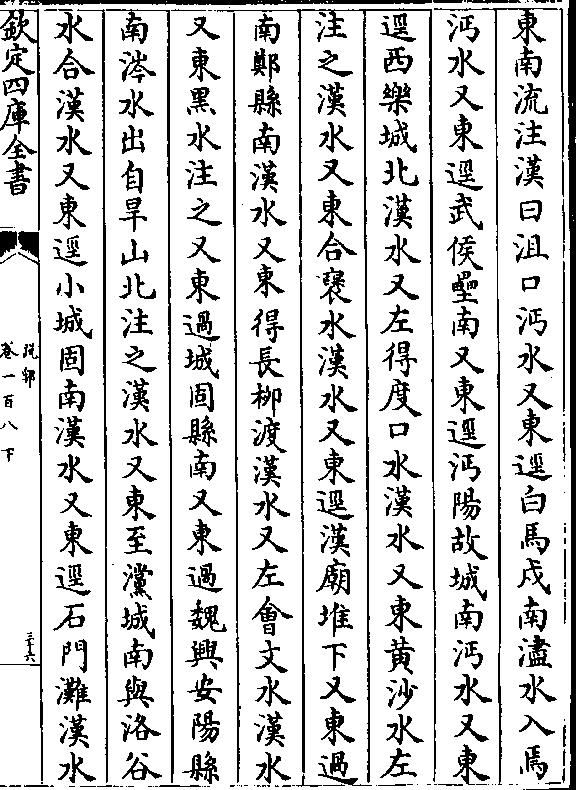 東南流注漢曰沮口沔水又東逕白馬戍南濜水入焉
沔水又東逕武侯壘南又東逕沔陽故城南沔水又東
逕西樂城北漢水又左得度口水漢水又東黄沙水左
注之漢水又東合褒水漢水又東逕漢廟堆下又東過
南鄭縣南漢水又東得長栁渡漢水又左會文水漢水
又東黑水注之又東過城固縣南又東過魏興安陽縣
南涔水出自旱山北注之漢水又東至灙城南與洛谷
水合漢水又東逕小城固南漢水又東逕石門灘漢水
欽定四庫全書
說郛
卷一百八下
三十六